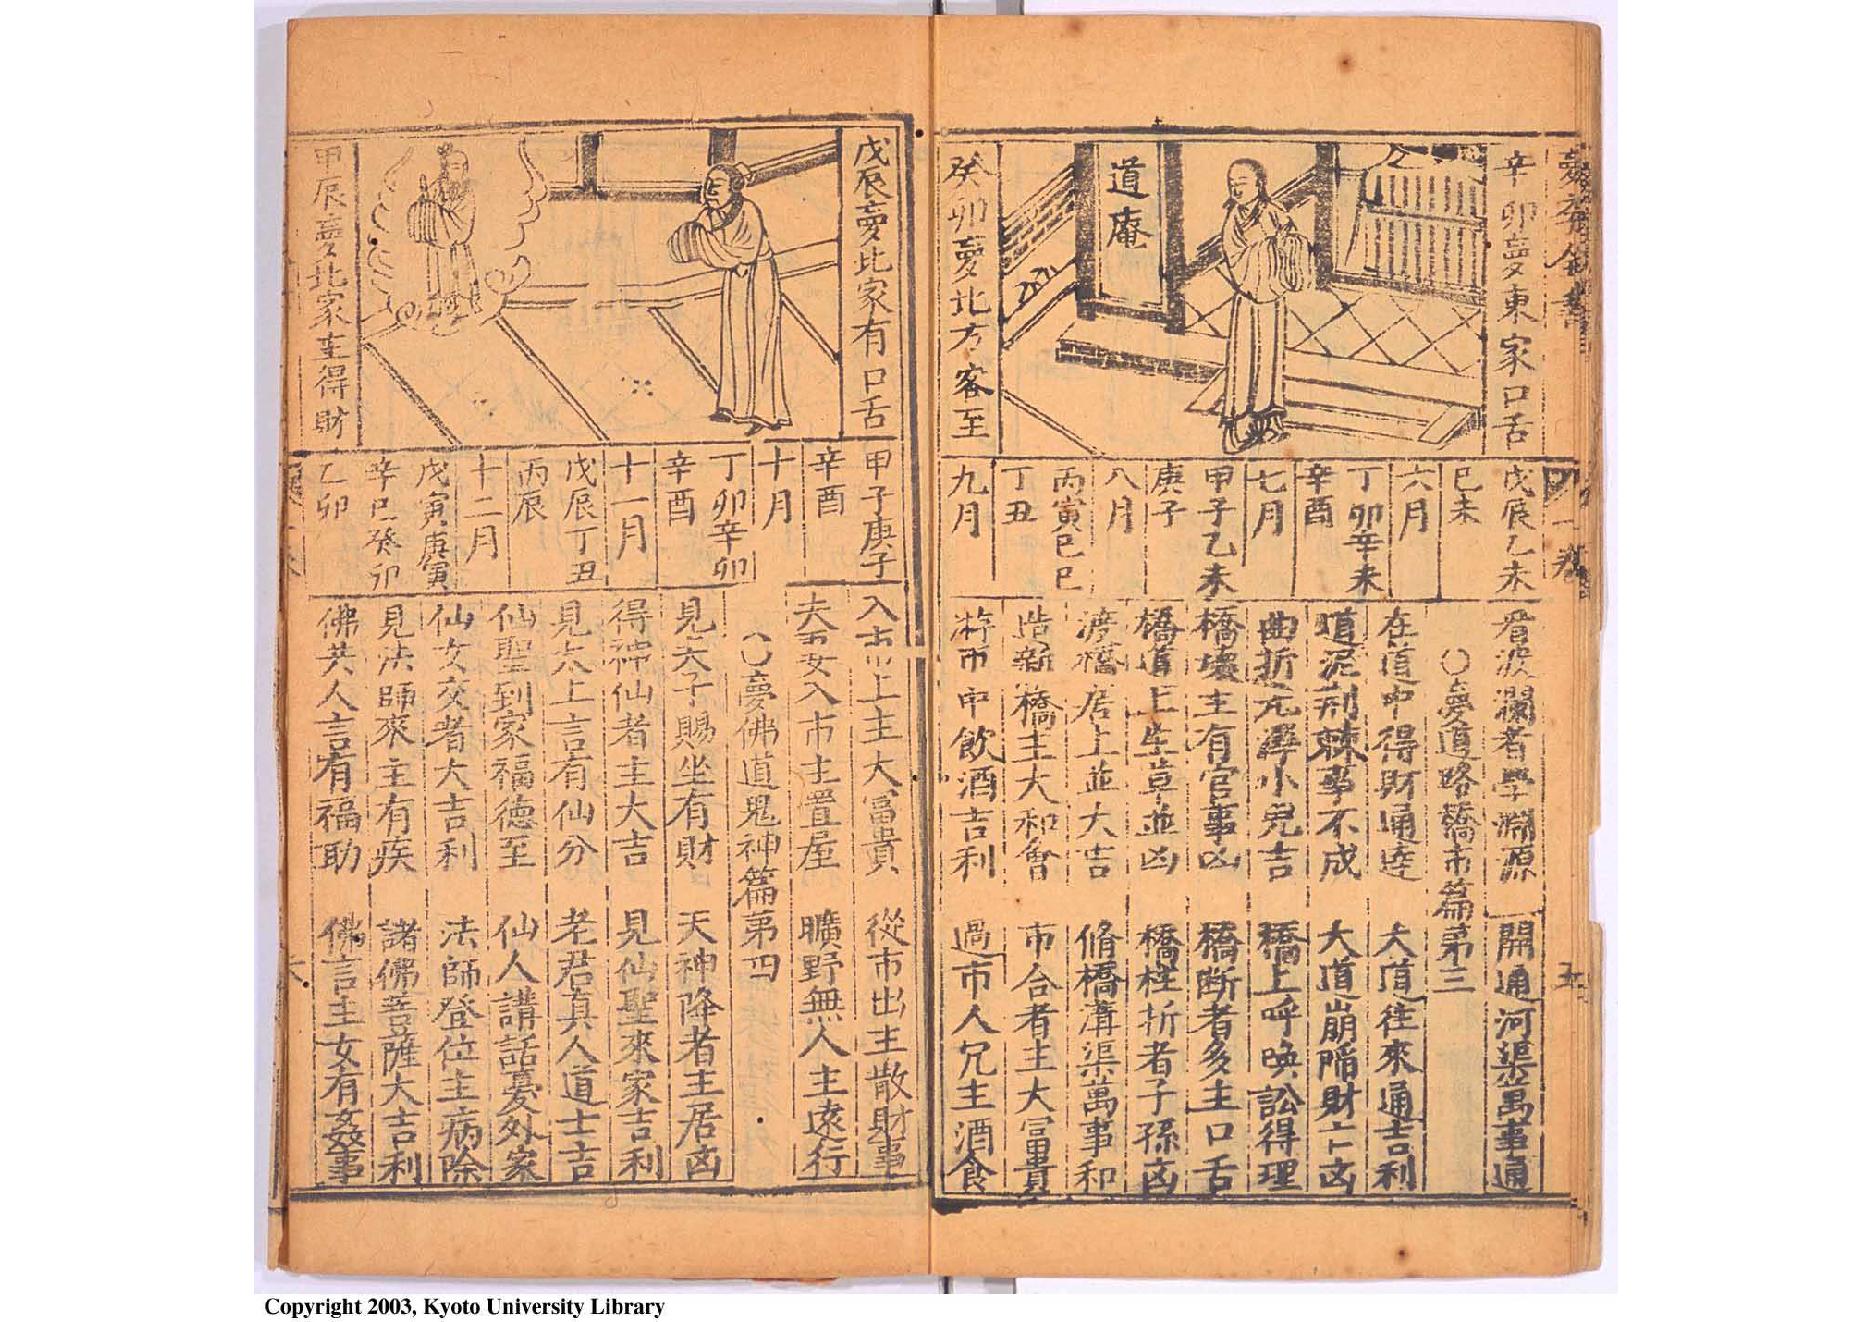 辛卯夢東家口舌
道庵
癸卯夢北方客至
戊辰乙未
己未
六月
丁卯辛未
辛酉
七月
甲子乙未
庚子
八月
丙寅己巳
丁丑
九月
看波瀾者學淵源 開通河渠萬事通
○夢道路橋市篇第三
在道中得財通達 大道往來通吉利
道泥荊棘事不成 大道崩陷財亡凶
曲折元滯小兒吉 橋上呼喚訟得理
橋壞主有官事凶 橋斷者多主口舌
橋道上生草並凶 橋柱折者子孫凶
渡橋居上並大吉 脩橋溝渠萬事和
造新橋主大和會 市合者主大富貴
符市中飲酒吉利 過市人兄主酒食
戊辰夢北家有口舌
甲辰夢北家主得財
甲子庚子
辛酉
十月
丁卯辛卯
辛酉
十一月
戊辰丁丑
丙辰
十二月
戊寅庚寅
辛巳癸卯
乙卯
入市上主大富貴 從市出主散財事
夫妻女入市主置屋 曠野無人主遠行
○夢佛道鬼神篇第四
見天子賜坐有財 天神降者主居凶
得神仙者主大吉 見仙聖來家吉利
見太上言有仙分 老君真人道士吉
仙聖到家福德至 仙人講話憂外家
仙女交者大吉利 法師登位主病除
見法師來主有疾 諸佛菩薩大吉利
佛共人言有福助 佛言主女有姦事
Copyright 2003, Kyoto University Library